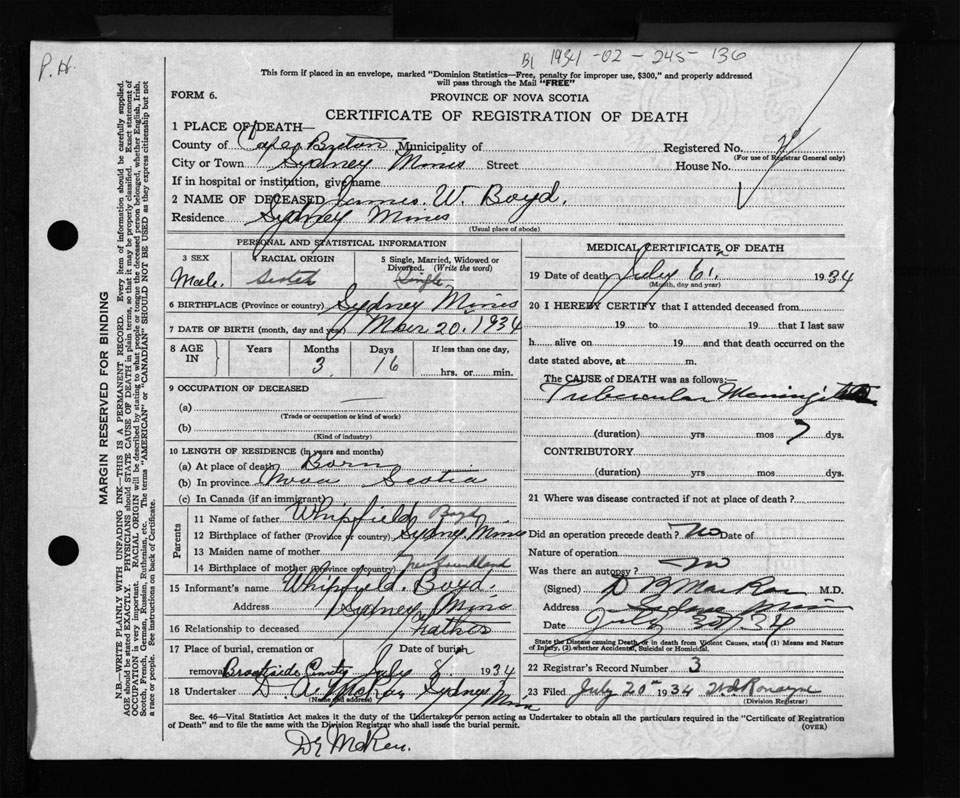 P.H.
1934-02-245-136
This form if placed in an envelope, marked "Dominion Statistics—Free, penalty for improper use, $300," and properly addressed
will pass through the Mail "FREE"
FORM 6.
PROVINCE OF NOVA SCOTIA
CERTIFICATE OF REGISTRATION OF DEATH
1 PLACE OF DEATH—
County of Cape Breton Municipality of Registered No.
(For use of Registrar General only)
City or Town Sydney Mines Street House No.
If in hospital or institution, give name
2 NAME OF DECEASED James W. Boyd.
Residence Sydney Mines
(Usual place of abode)
PERSONAL AND STATISTICAL INFORMATION
3 SEX 4 RACIAL ORIGIN 5 Single, Married, Widowed or Divorced. (Write the word)
Male. Single
6 BIRTHPLACE (Province or country) Sydney Mines
7 DATE OF BIRTH (month, day and year) 20. 1934
8 AGE IN Years Months Days If less than one day,
3 16 hrs. or min.
9 OCCUPATION OF DECEASED
(a) —
(Trade or occupation or kind of work)
(b)
(Kind of industry)
10 LENGTH OF RESIDENCE (in years and months)
(a) At place of death Born
(b) In province Nova Scotia
(c) In Canada (if an immigrant)
Parents
11 Name of father Whipfield Boyd
12 Birthplace of father (Province or country) Sydney Mines
13 Maiden name of mother
14 Birthplace of mother (Province or country) Newfoundland
15 Informant's name Whipfield Boyd.
Address Sydney Mines
16 Relationship to deceased Father
17 Place of burial, cremation or removal Date of burial
Brookside Cmty July 8, 1934
18 Undertaker D. A. McRae Sydney Mines
(Name and address)
MEDICAL CERTIFICATE OF DEATH
19 Date of death July 6, 1934
(Month, day and year)
20 I HEREBY CERTIFY that I attended deceased from
19 to 19 that I last saw
h alive on 19 and that death occurred on the
date stated above, at m.
The CAUSE of DEATH was as follows:—
Tubercular Meningitis
(duration) yrs mos 7 dys.
CONTRIBUTORY
(duration) yrs mos dys.
21 Where was disease contracted if not at place of death?
Did an operation precede death? No Date of
Nature of operation
Was there an autopsy? No
(Signed) D B MacRae M.D.
Address Sydney Mines
Date July 20/34
State the Disease causing Death, or in death from Violent Causes, state (1) Means and Nature
of Injury, (2) whether Accidental, Suicidal or Homicidal.
22 Registrar's Record Number 3
23 Filed July 20 1934
(Division Registrar)
Sec. 46—Vital Statistics Act makes it the duty of the Undertaker or person acting as Undertaker to obtain all the particulars required in the "Certificate of Registration
of Death" and to file the same with the Division Registrar who shall issue the burial permit.
(OVER)
MARGIN RESERVED FOR BINDING
N.B.—WRITE PLAINLY WITH UNFADING INK—THIS IS A PERMANENT RECORD. Every item of information should be carefully supplied.
AGE should be stated EXACTLY. PHYSICIANS should STATE CAUSE OF DEATH in plain terms, so that it may be properly classified. Exact statement of
OCCUPATION is very important. RACIAL ORIGIN will be described by stating to what people or tongue the deceased person belonged, whether English, Irish,
Scotch, French, German, Russian, Ruthenian, etc. The terms "AMERICAN" or "CANADIAN" SHOULD NOT BE USED as they express citizenship but not
a race or people. See instructions on back of Certificate.